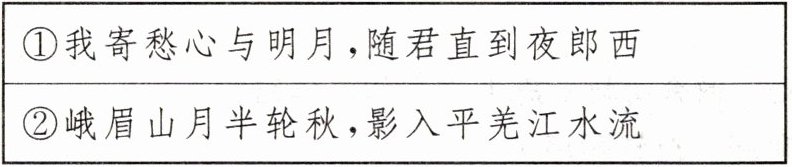 ①我寄愁心与明月,随君直到夜郎西
②峨眉山月半轮秋,影入平羌江水流